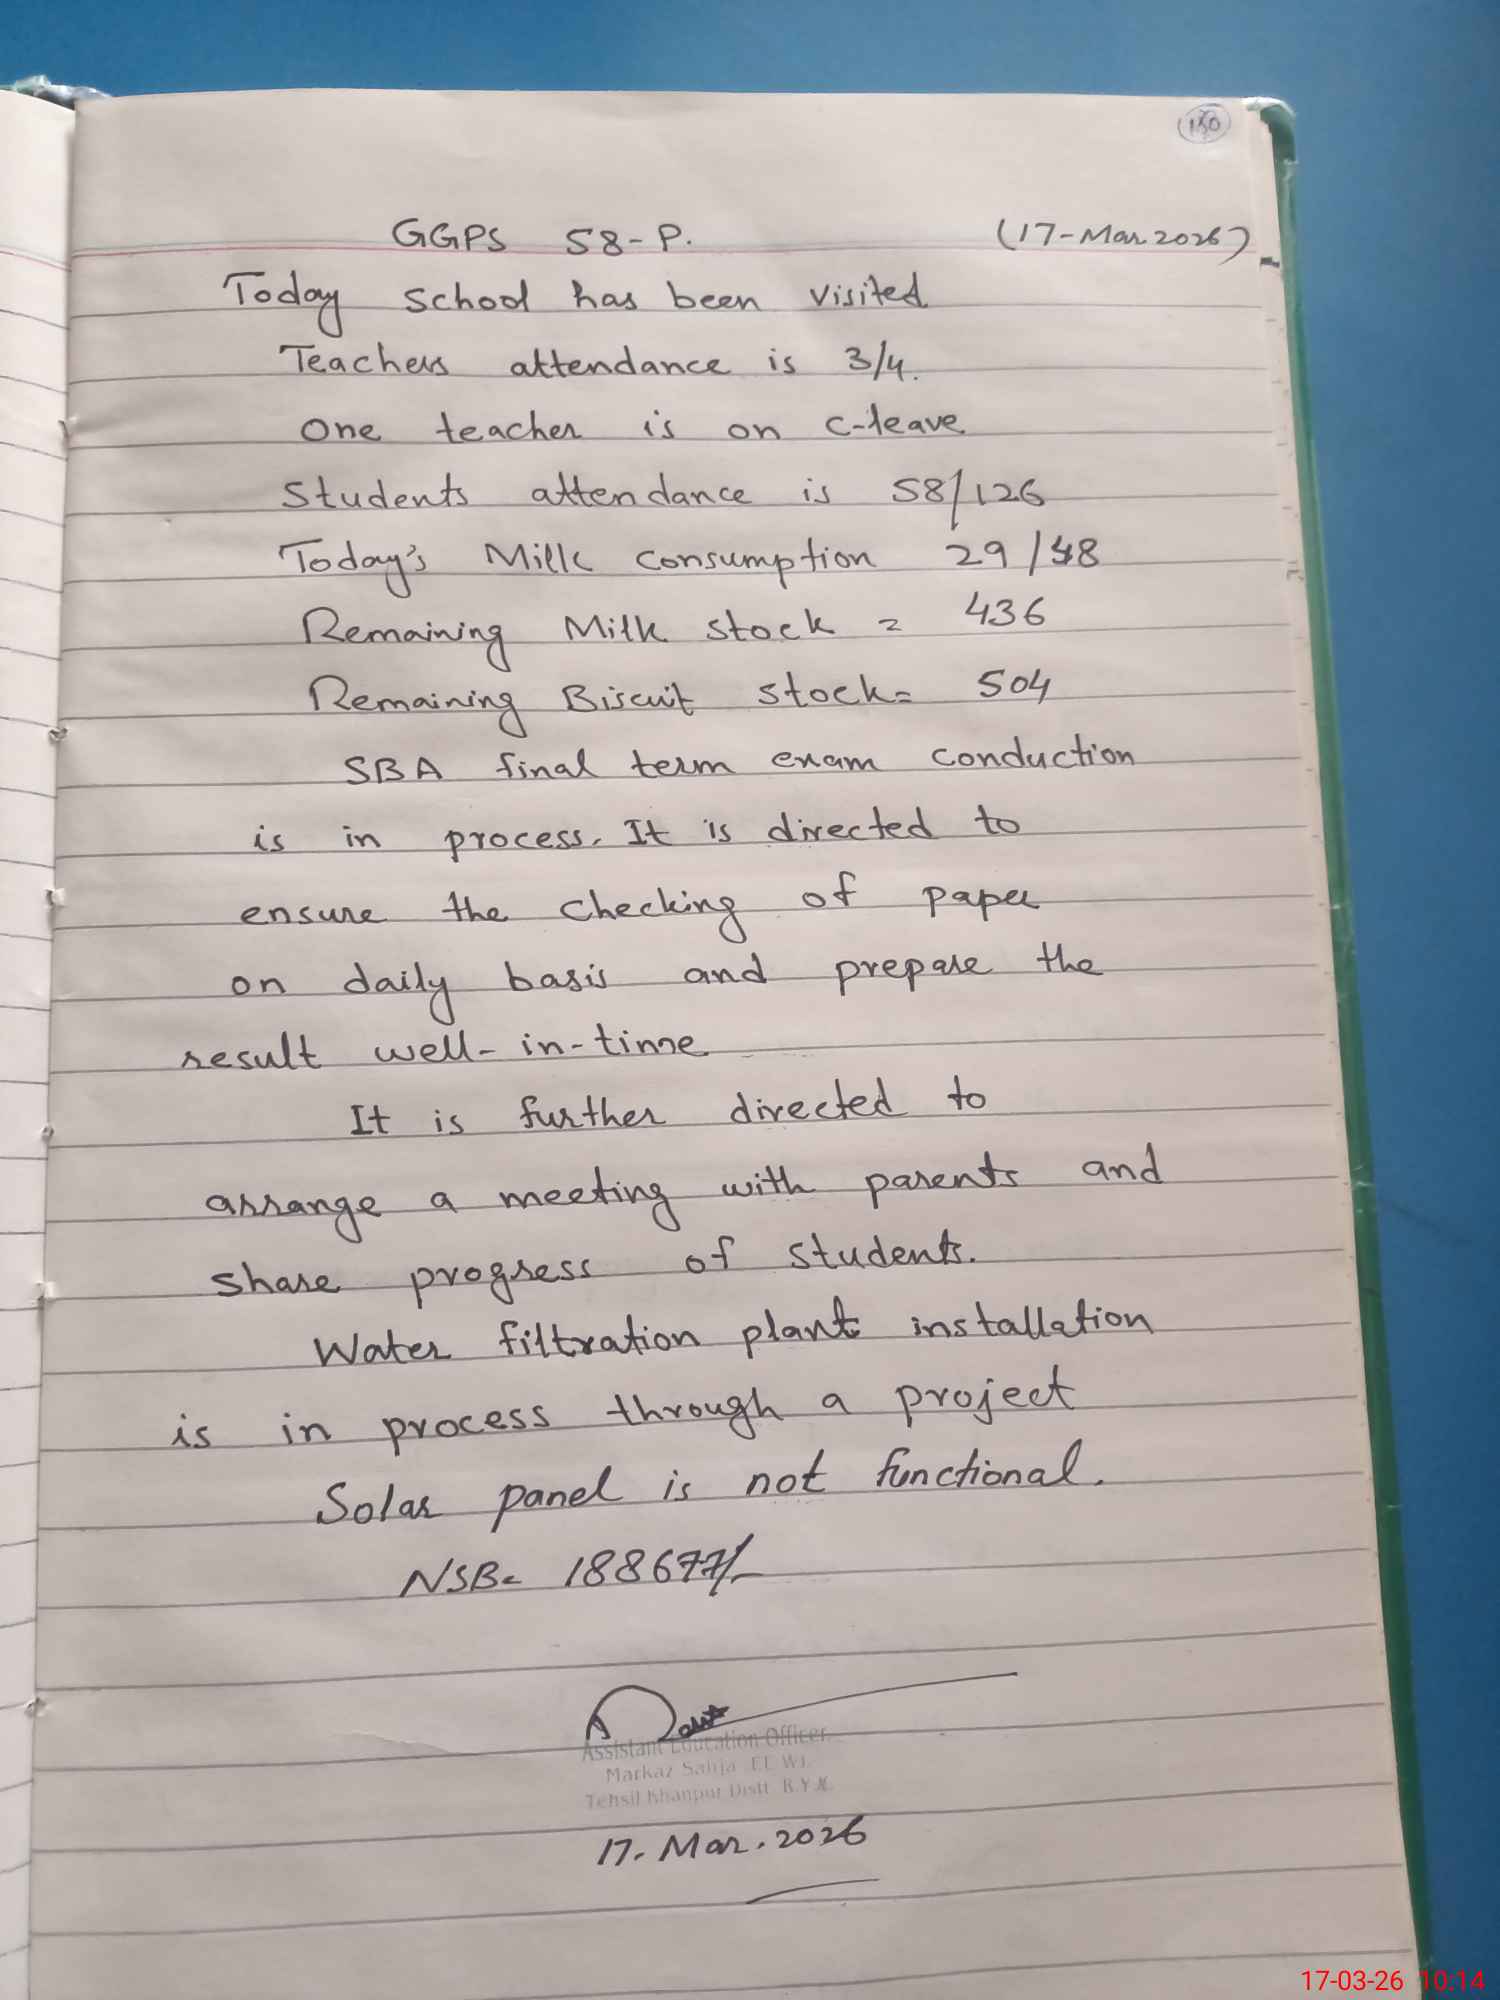 150
GGPS 58-P. (17-Mar.2026)
Today school has been visited
Teachers attendance is 3/4.
One teacher is on c-leave
Students attendance is 58/126
Today's Milk consumption 29/
Remaining Milk stock = 436
Remaining Biscuit stock = 504
SBA final term exam conduction
is in process. It is directed to
ensure the checking of paper
on daily basis and prepare the
result well-in-time
It is further directed to
arrange a meeting with parents and
share progress of students.
Water filtration plant installation
is in process through a project
Solar panel is not functional.
NSB= 188677/-
Assistant Education Officer
Markaz
Tehsil Khanpur Distt R.Y.K.
17. Mar. 2026
17-03-26 10:14